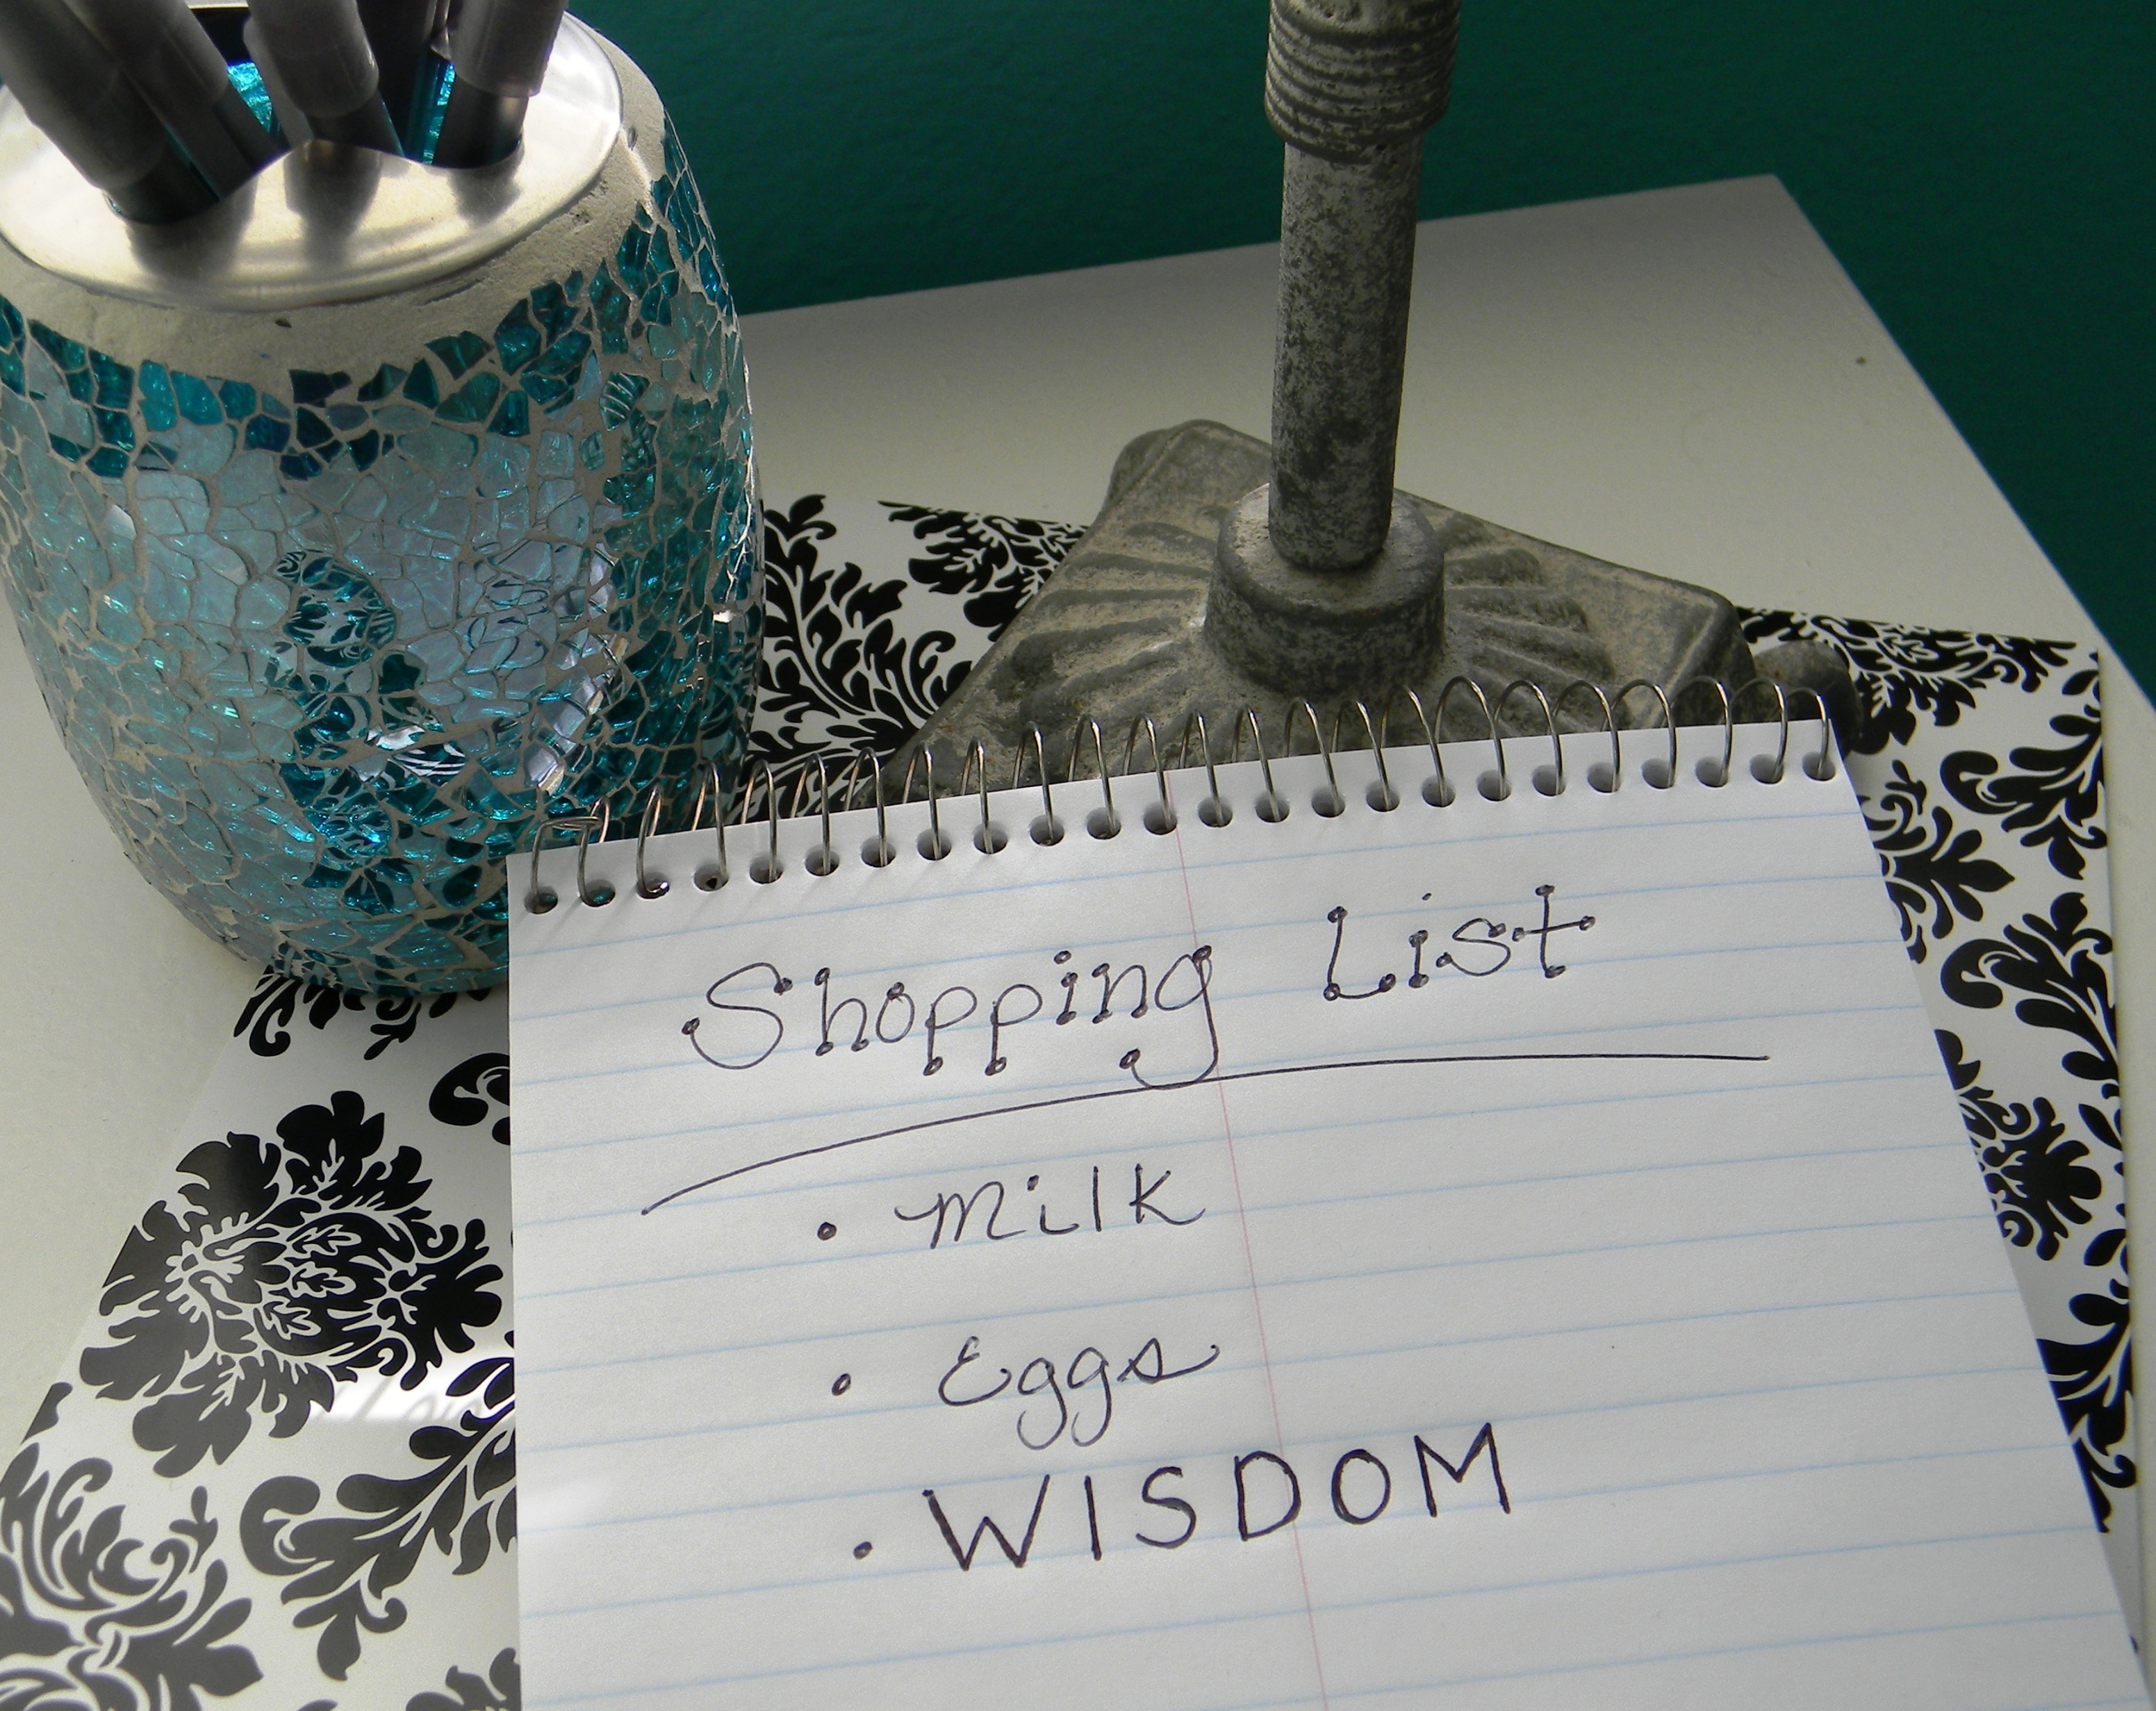 Shopping List
• Milk
• Eggs
• WISDOM